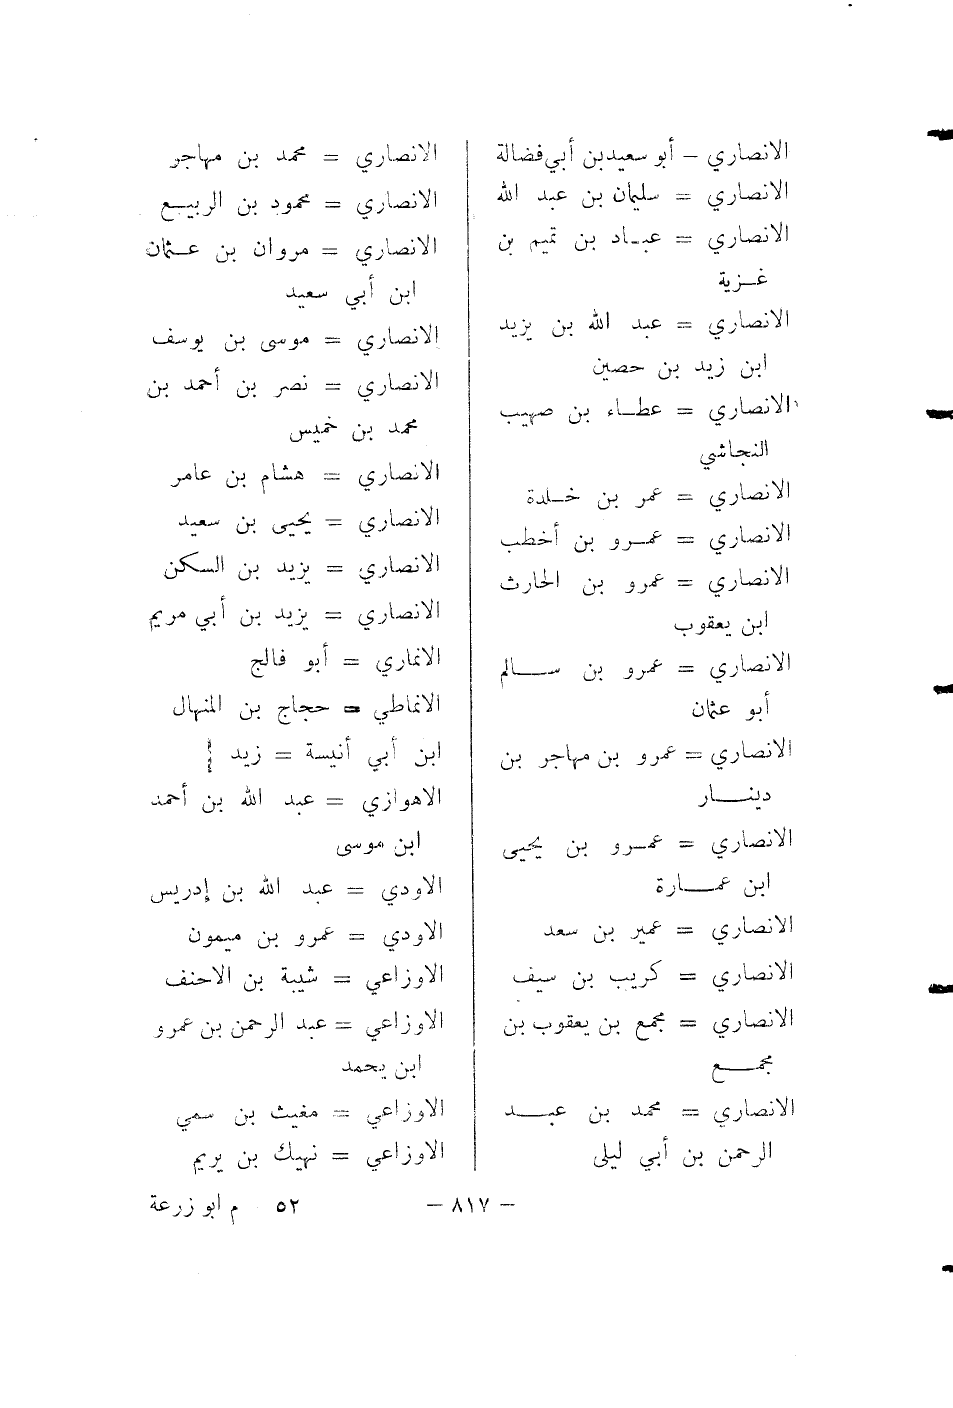 الانصاري – أبو سعيد بن أبي فضالة
الانصاري = سليمان بن عبد الله
الانصاري = عباد بن تميم بن
غزية
الانصاري = عبد الله بن يزيد
ابن زيد بن حصين
الانصاري = عطاء بن صهيب
النجاشي
الانصاري = عمر بن خلدة
الانصاري = عمرو بن أخطب
الانصاري = عمرو بن الحارث
ابن يعقوب
الانصاري = عمرو بن سالم
أبو عثمان
الانصاري = عمرو بن مهاجر بن
دينار
الانصاري = عمرو بن يحيى
ابن عمارة
الانصاري = عمير بن سعد
الانصاري = كريب بن سيف
الانصاري = مجمع بن يعقوب بن
مجمع
الانصاري = محمد بن عبد
الرحمن بن أبي ليلى
الانصاري = محمد بن مهاجر
الانصاري = محمود بن الربيع
الانصاري = مروان بن عثمان
ابن أبي سعيد
الانصاري = موسى بن يوسف
الانصاري = نصر بن أحمد بن
محمد بن خميس
الانصاري = هشام بن عامر
الانصاري = يحيى بن سعيد
الانصاري = يزيد بن السكن
الانصاري = يزيد بن أبي مريم
الانماري = أبو فالج
الانماطي = حجاج بن المنهال
ابن أبي أنيسة = زيد
الاهوازي = عبد الله بن أحمد
ابن موسى
الاودي = عبد الله بن إدريس
الاودي = عمرو بن ميمون
الاوزاعي = شيبة بن الاحنف
الاوزاعي = عبد الرحمن بن عمرو
ابن يحمد
الاوزاعي = مغيث بن سمي
الاوزاعي = نهيك بن يريم
– ٨١٧ –
٥٢ م ابو زرعة